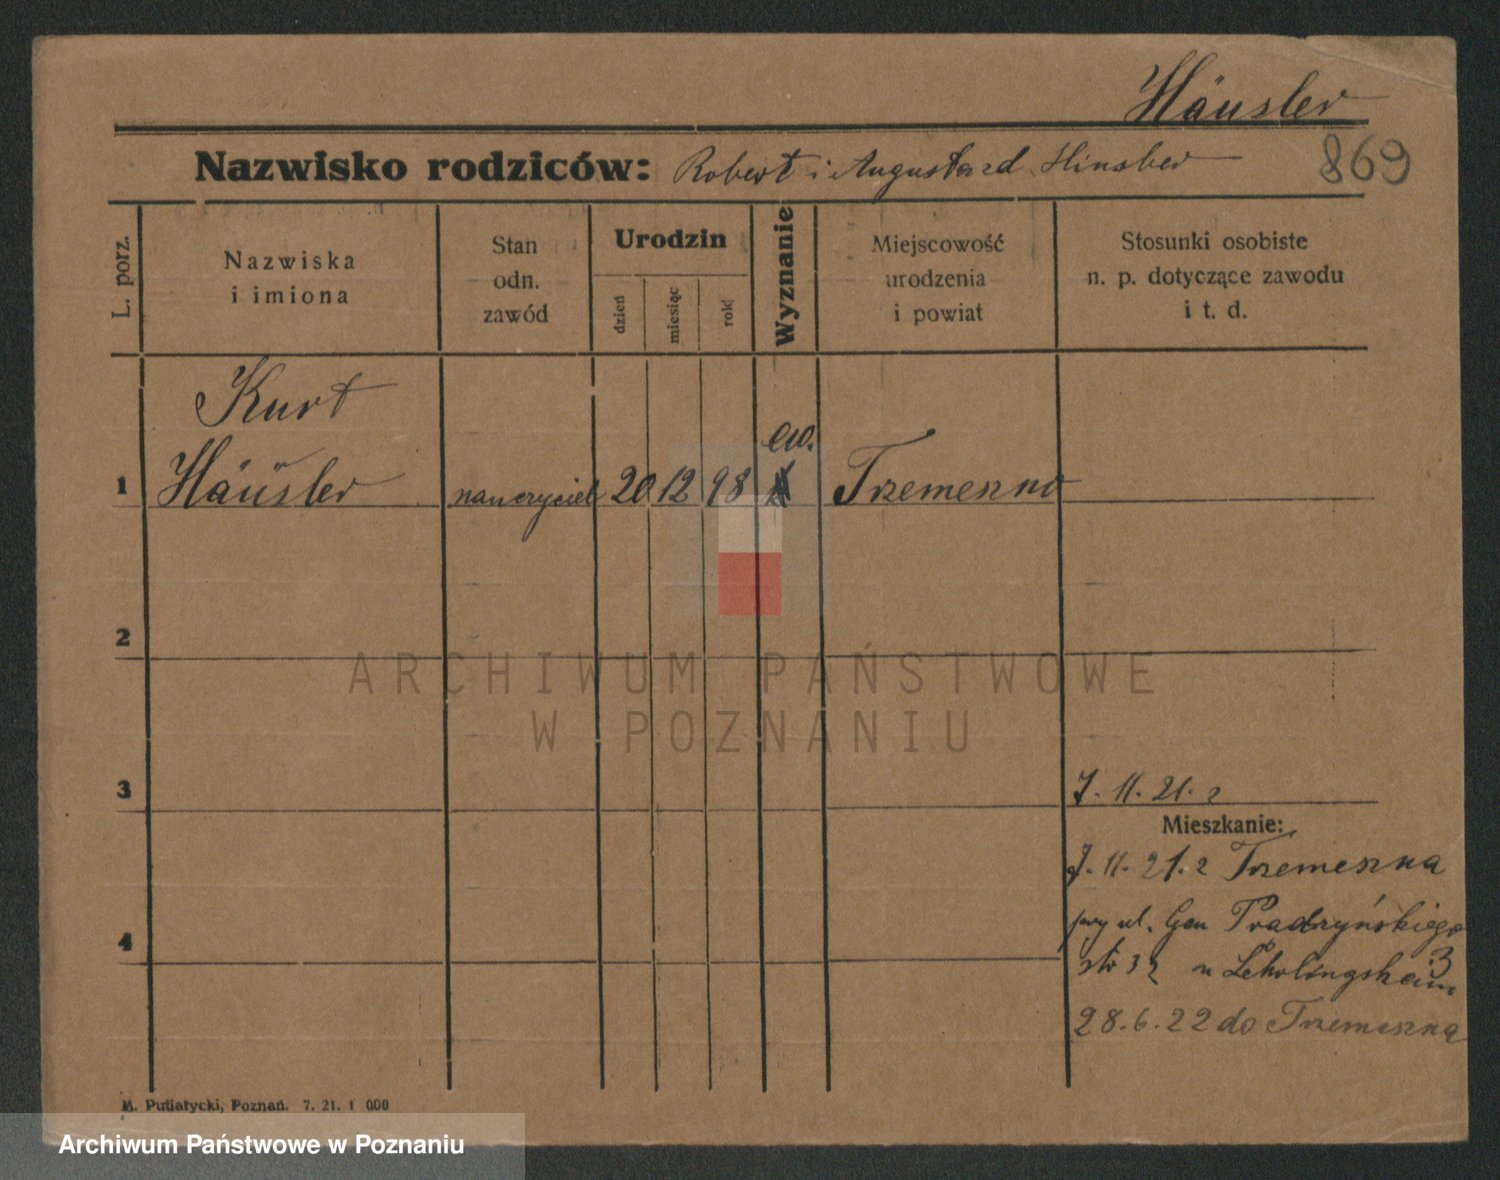 Häusler
Nazwisko rodziców: Robert i Augusta zd Hinsber
869
L. porz.
Nazwiska
i imiona
Stan
odn.
zawód
Urodzin
dzień
miesiąc
rok
Wyznanie
Miejscowość
urodzenia
i powiat
Stosunki osobiste
n. p. dotyczące zawodu
i t. d.
Kurt
1 Häusler nauczyciel 20 12 98 ew. Trzemeszno
2
3
7. 11. 21. z
Mieszkanie:
7. 11. 21. z Trzemeszna
przy ul. Gen Prądzyńskiego
32 u
4
28. 6. 22 do Trzemeszna
M. Putiatycki, Poznań. 7. 21. 1 000
ARCHIWUM PAŃSTWOWE
W POZNANIU
Archiwum Państwowe w Poznaniu